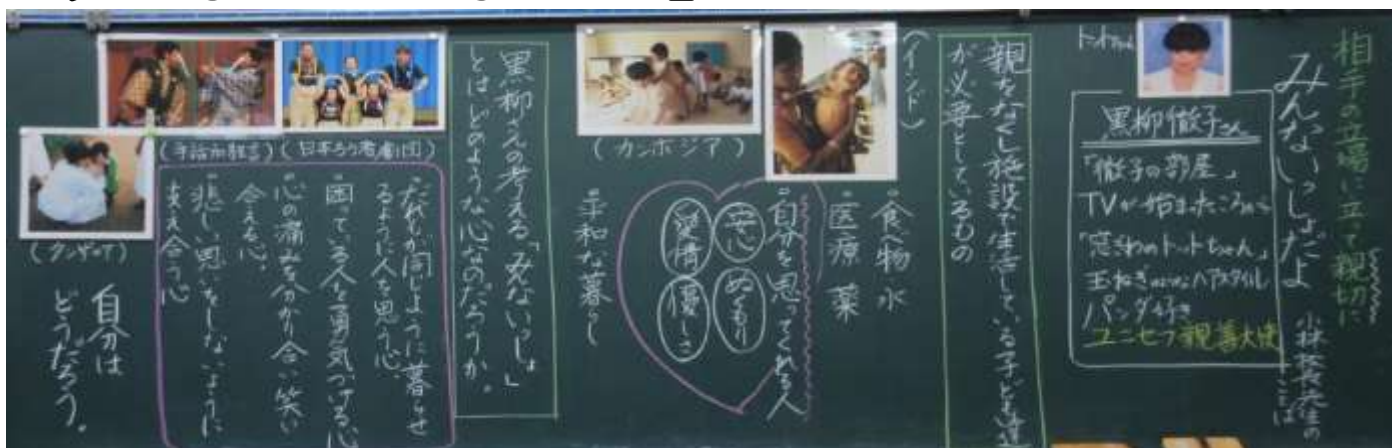 相手の立場に立って親切に
みんないっしょだよ
小林校長先生の
ことば
トットちゃん
黒柳徹子さん
「徹子の部屋」
TVが始まったころから
「窓ぎわのトットちゃん」
玉ねぎ ヘアスタイル
パンダ好き
ユニセフ親善大使
親をなくし施設で生活している子ども達
が必要としているもの
(インド)
・食べ物 水
医療 薬
・自分を思ってくれる人
安心 ぬくもり
愛情 優しさ
・平和な暮らし
(カンボジア)
黒柳さんの考える「みんないっしょ」
とはどのような心なのだろうか。
(日本ろう者劇団)
(手話狂言)
・だれもが同じように暮らせ
るように人を思う心
・困っている人を勇気づける心
・心の痛みを分かり合い笑い
合える心。
・悲しい思いをしないように
支え合う心
自分は
どうだろう。